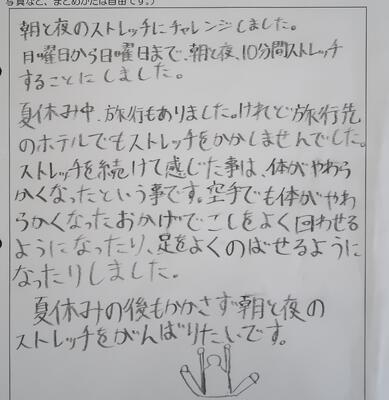 写真など、まとめかたは自由です。)
朝と夜のストレッチにチャレンジしました。
月曜日から日曜日まで、朝と夜、10分間ストレッチ
することにしました。
夏休み中、旅行もありました。けれど旅行先
のホテルでもストレッチをかかしませんでした。
ストレッチを続けて感じた事は、体がやわら
かくなったという事です。空手でも体がやわ
らかくなったおかげでこしをよく回わせる
ようになったり、足をよくのばせるように
なったりしました。
夏休みの後もかかさず朝と夜の
ストレッチをがんばりたいです。